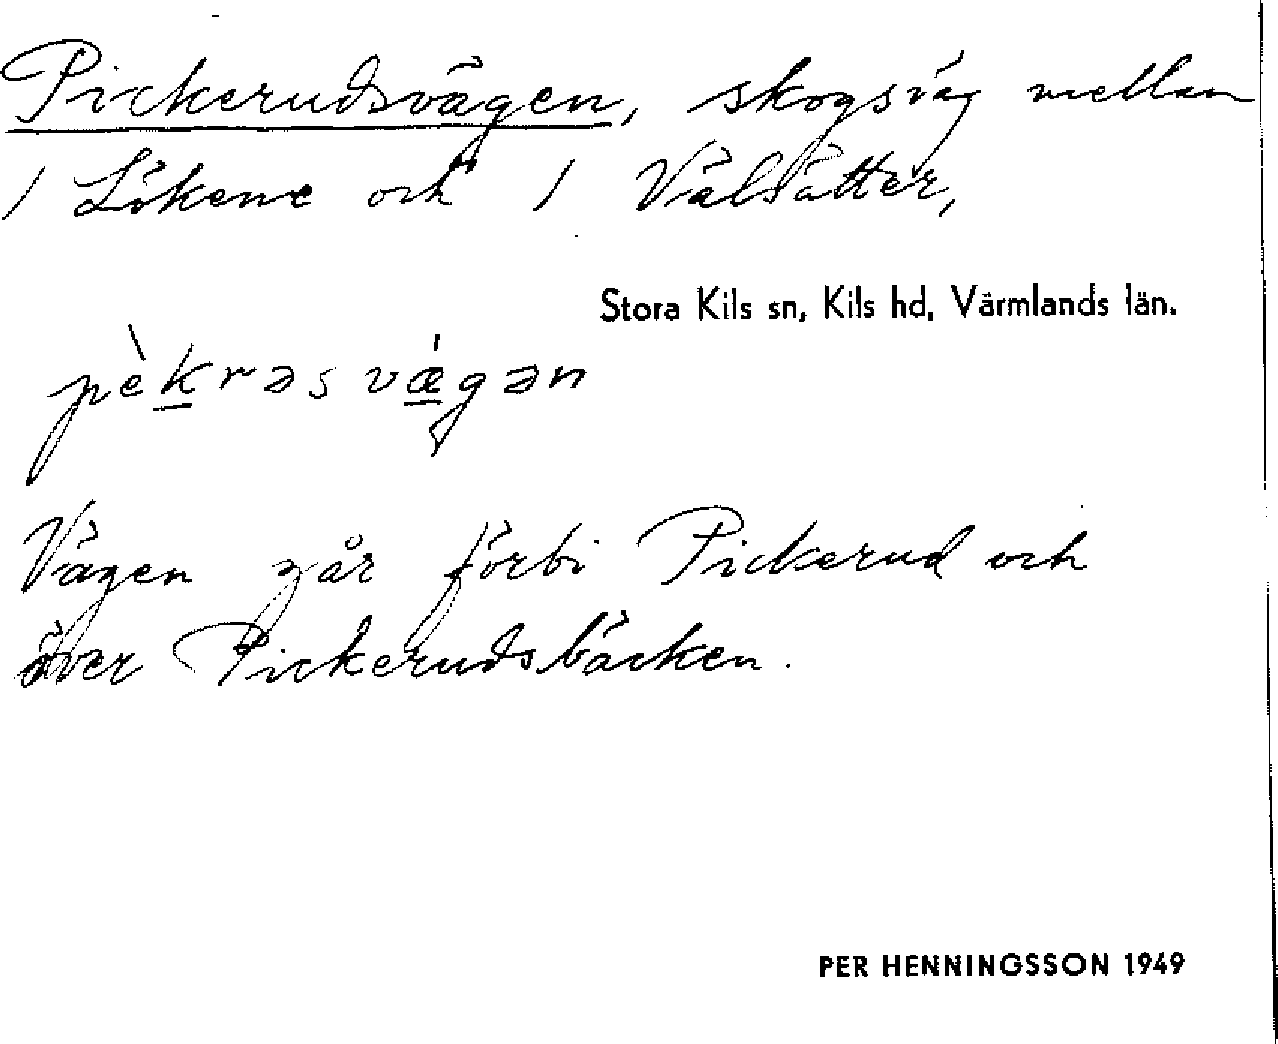 Pickerudsvägen, skogsväg mellan
/ Lökene och / Välsätter,
Stora Kils sn, Kils hd, Värmlands län.
pèkrəs vǽgən
Vägen går förbi Pickerud och
över Pickerudsbäcken.
PER HENNINGSSON 1949